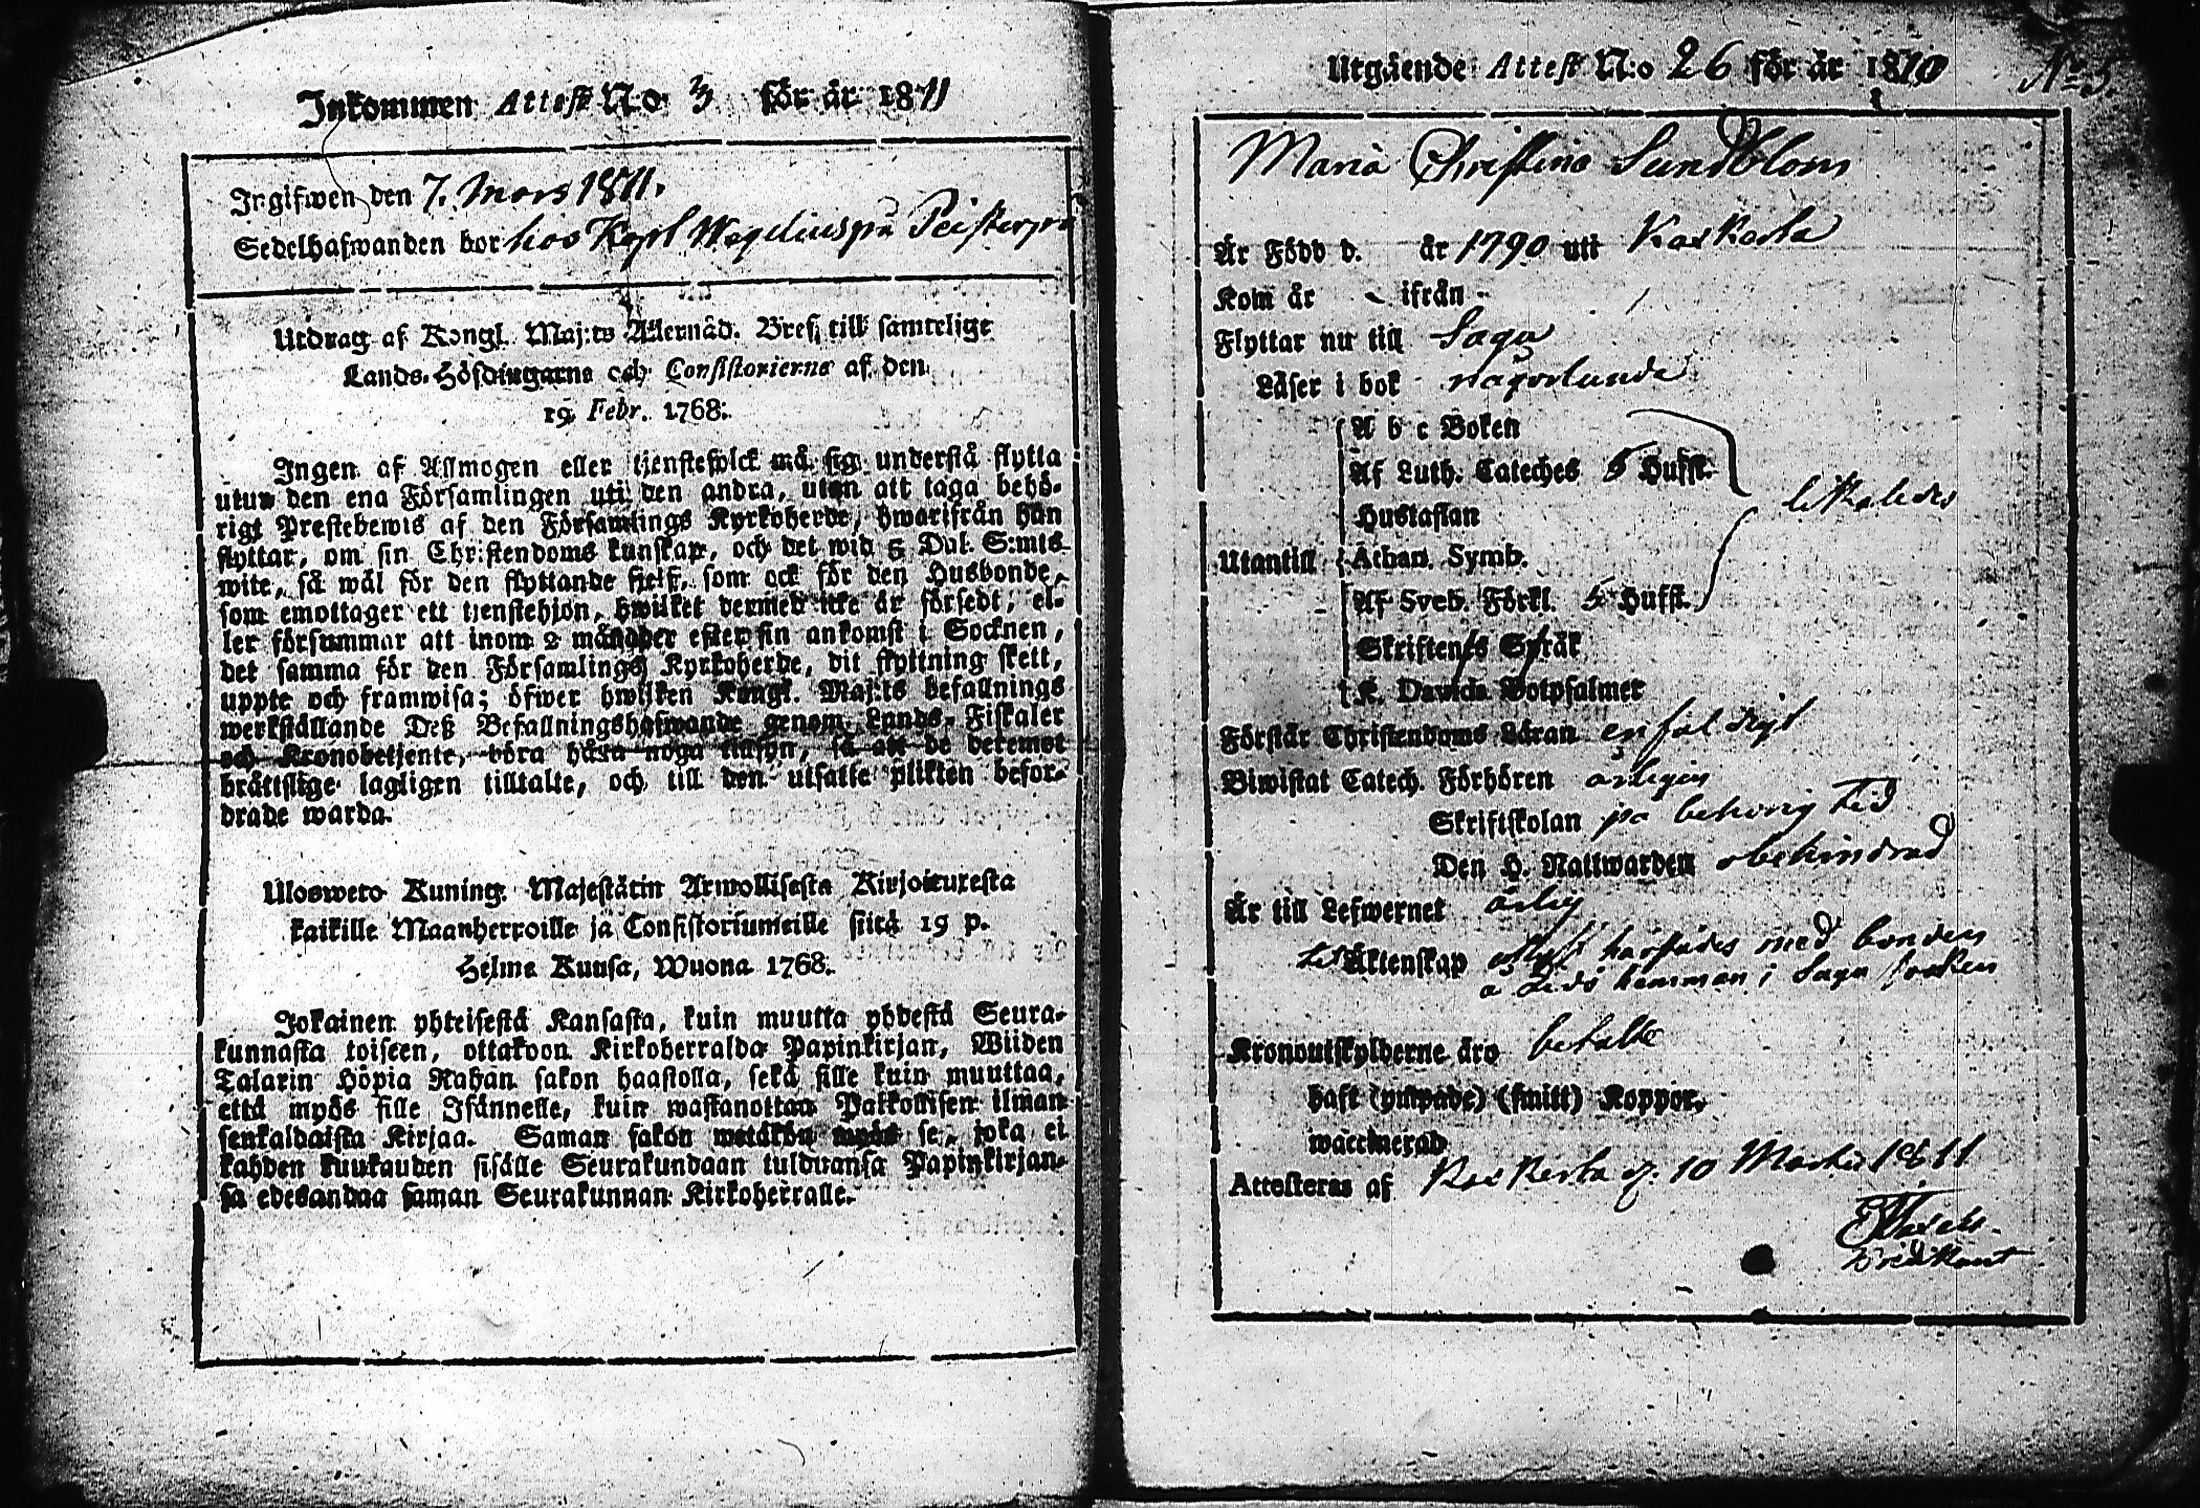 Inkommen Attest N:o 3 för år 1811
Ingifwen den 7. Mars 1811.
Sedelhafwanden bor hos Kapl Wegelius på
Utdrag af Kongl. Maj:ts Allernåd. Bref till samtelige
Lands-Höfdingarne och Consistorierne af den
19 Febr. 1768.
Ingen af Allmogen eller tjenstefolck må sig understå flytta
utur den ena Församlingen uti den andra, utan att taga behö-
rigt Prestebewis af den Församlings Kyrkoherde, hwarifrån han
flyttar, om sin Christendoms kunskap, och det wid 5 Dal. S:mts
wite, så wäl för den flyttande sjelf, som ock för den Husbonde,
som emottager ett tjenstehjon, hwilket dermed icke är försedt, el-
ler försummar att inom 2 månader efter sin ankomst i Socknen,
det samma för den Församlings Kyrkoherde, dit flyttning skett,
uppte och framwisa; öfwer hwilken Kongl. Maj:ts befallnings
werkställande Deß Befallningshafwande genom Lands-Fiskaler
och Kronobetjente, böra hafwa noga tillsyn, så att de deremot
bråttslige lagligen tilltalte, och till den utsatte plikten befor-
drade warda.
Ulosweto Kuning. Majestätin Armollisesta Kirjoituxesta
kaikille Maanherroille ja Consistoriumeille siitä 19 p.
Helme Kuusa, Wuona 1768.
Jokainen yhteisestä Kansasta, kuin muutta yhdestä Seura-
kunnasta toiseen, ottakoon Kirkoherralda Papinkirjan, Wiiden
Talarin Höpia Rahan sakon haastolla, sekä sille kuin muuttaa,
että myös sille Isännelle, kuin wastanottaa Palkollisen ilman
senkaldaista Kirjaa. Saman sakon wetäkön myös se, joka ei
kahden kuukauden sisälle Seurakundaan tulduansa Papinkirjan-
sa edesandaa saman Seurakunnan Kirkoherralle.
Utgående Attest N:o 26 för år 1810 No 5.
Maria Christina Sundblom
Är Född d. år 1790 uti Karkarla
Kom år - ifrån -
Flyttar nu till Sagu
Läser i bok någorlunda
A b c Boken
Af Luth. Cateches 5 Hufst.
likaledes
Hustaflan
Utantill Athan. Symb.
Af Sveb. Förkl. 5 Hufst.
Skriftenes Språk
K. Davids Botpsalmer
Förstår Christendoms Läran enfaldigt
Biwistat Catech. Förhören årligen
Skriftskolan på behörig tid
Den H. Nattwarden obehindrad
Är till Lefwernet ärlig
till Äktenskap med bonden
å hemman i Sagu socken
Kronoutskylderne äro betalte
haft (ympade) (smitt) Koppor,
waccinerad
Attesteras af Karkarla d. 10 Martii 1811
Predikant